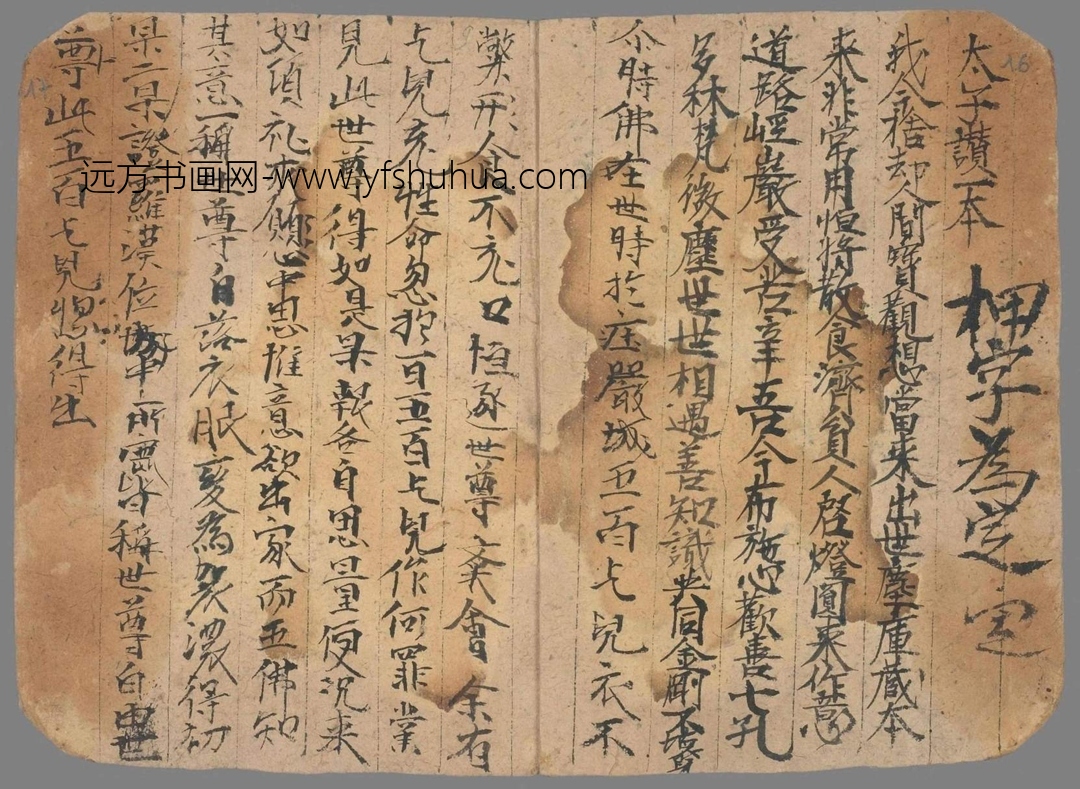 太子讚一本 押字為定
我今捨却人間寶觀想當来出世塵庫藏本
来非常用恒將散食濟貧人啓燈圓来作慈心
道路崄巖受苦辛吾今布施心歡善七孔
多林梵後塵世世相遇善知識共同金剛不壞身
尒時佛在世時於庄嚴城五百乞兒衣不
弊形食不充口恒逐世尊斎會余有
乞兒充性命忽於一日五百乞兒作何罪業
見此世尊得如是果報各自思量便況来
如頂礼世尊心中思惟意欲出家而五佛知
其意一稱世尊自落衣服变為袈裟濃得初
果二果證羅漢位 所 皆稱世尊自世
尊此五百乞兒惣得生
16
17
远方书画网-www.yfshuhua.com